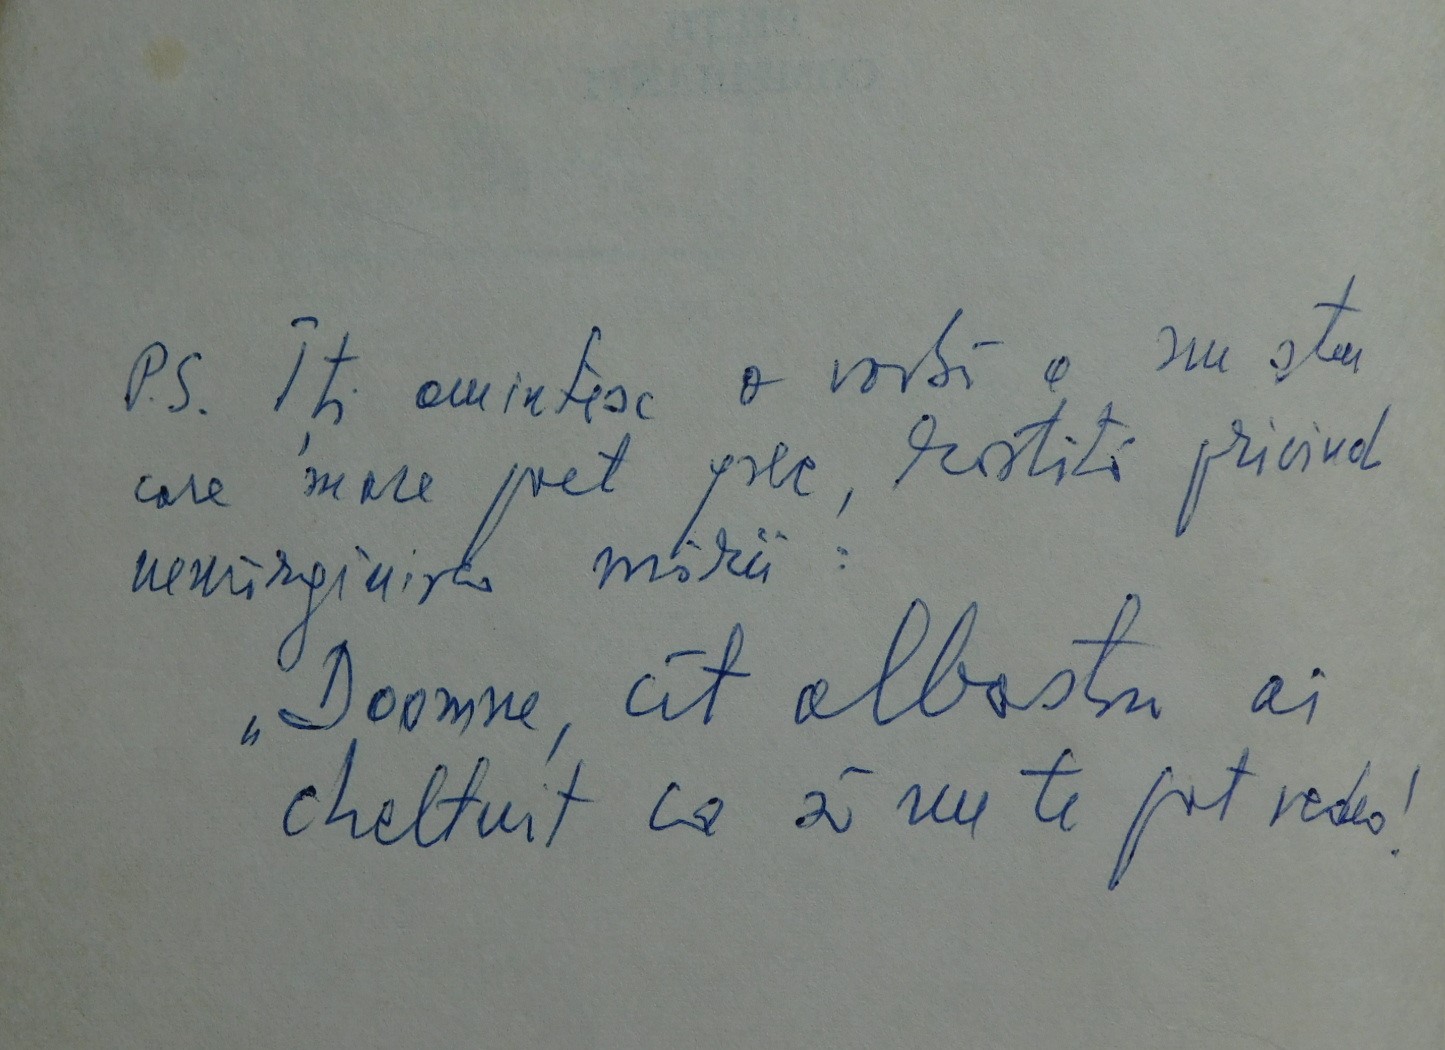 P.S. Îți amintesc o vorbă a nu știu
care mare poet grec, rostită privind
nemărginirea mării :
„Doamne, cît albastru ai
cheltuit ca să nu te pot vedea!